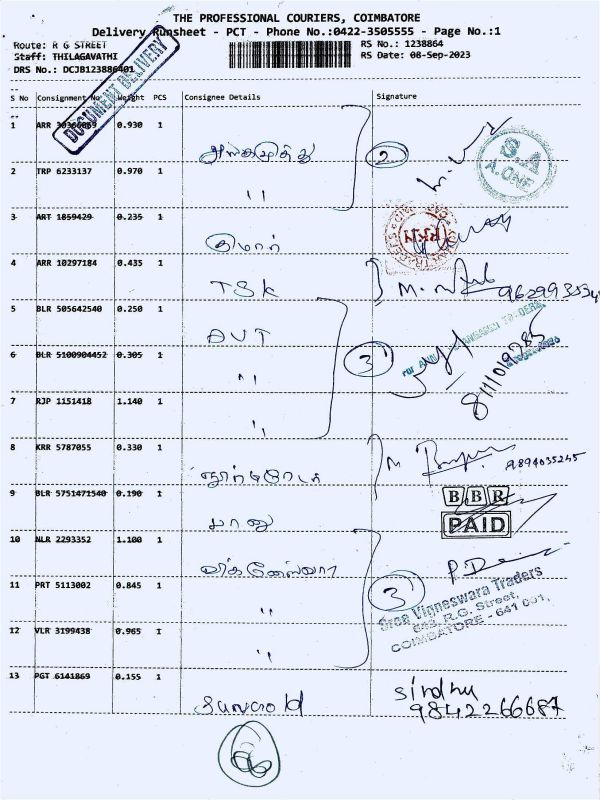 THE PROFESSIONAL COURIERS, COIMBATORE
Delivery Runsheet - PCT - Phone No.:0422-3505555 - Page No.:1
Route: R G STREET
RS No.: 1238864
Staff: THILAGAVATHI
RS Date: 08-Sep-2023
DRS No.: DCJB123886401
DOCUMENT DELIVERY
S No Consignment No Weight PCS Consignee Details Signature
1 ARR 0.930 1
2
S.A
A.ONE
2 TRP 6233137 0.970 1
"
3 ART 1859429 0.235 1
குமார்
4 ARR 10297184 0.435 1
TSK
M.
5 BLR 505642540 0.250 1
AVT
6 BLR 5100904452 0.305 1
"
3
7 RJP 1151418 1.140 1
"
8 KRR 5787055 0.330 1
M
9894035245
9 BLR 5751471540 0.190 1
பானு
BBR
PAID
10 NLR 2293352 1.100 1
11 PRT 5113002 0.845 1
"
3
Sree Vigneswara Traders
R.G. Street,
COIMBATORE - 641 001.
12 VLR 3199438 0.965 1
"
13 PGT 6141869 0.155 1
Sindhu
9842266687